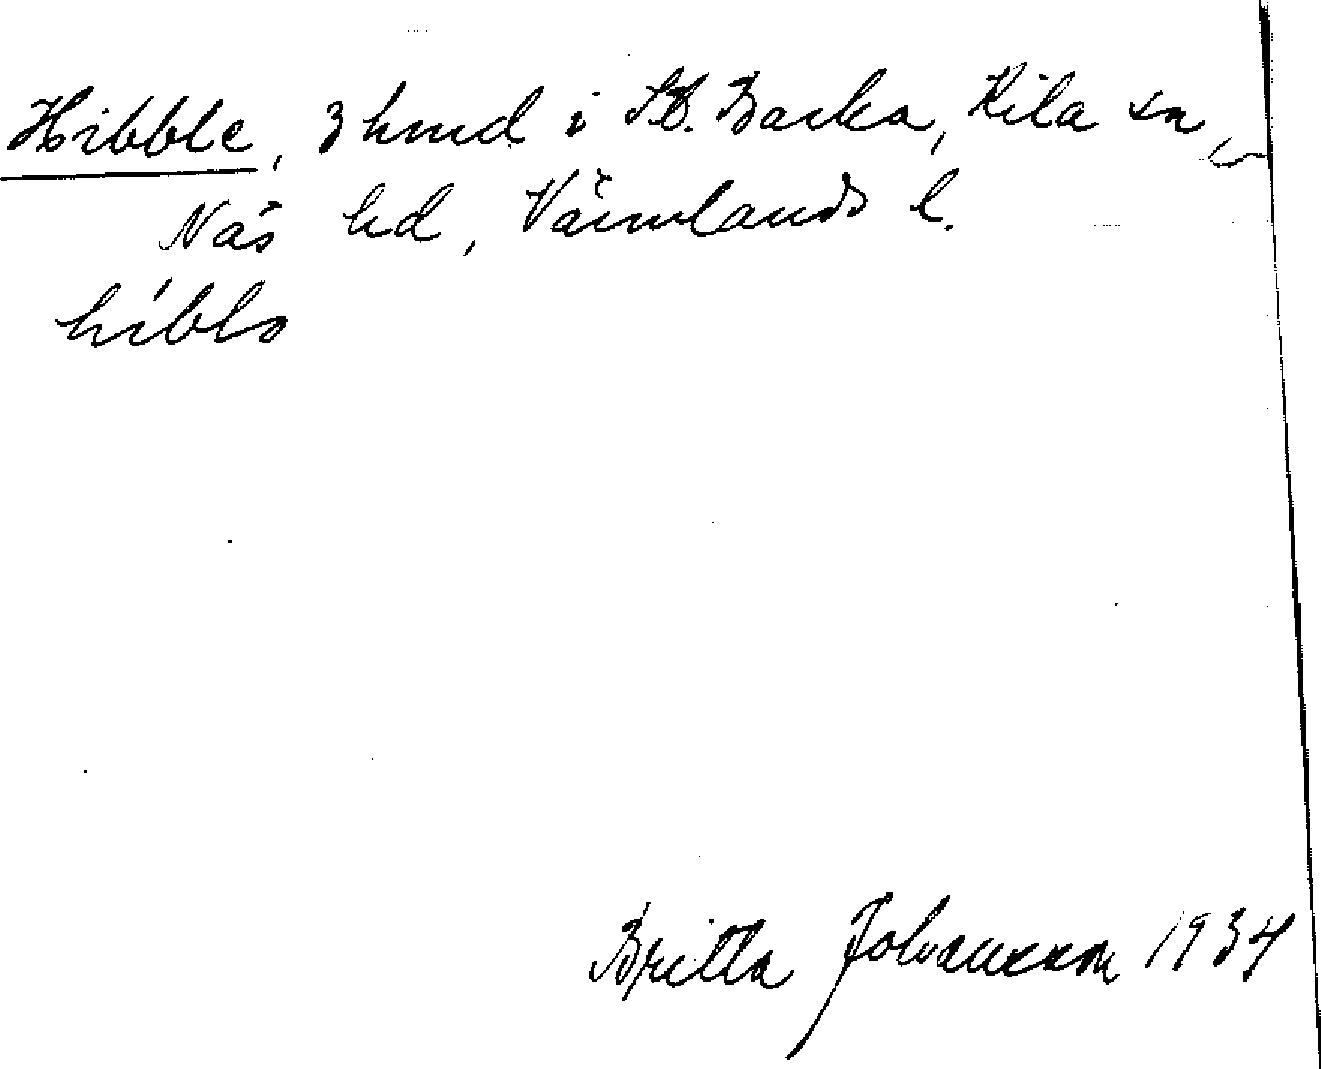 Hibble, 3 hmd i St. Backa, Kila sn,
Näs hd, Värmlands l.
hiblo
Britta Johansson 1934